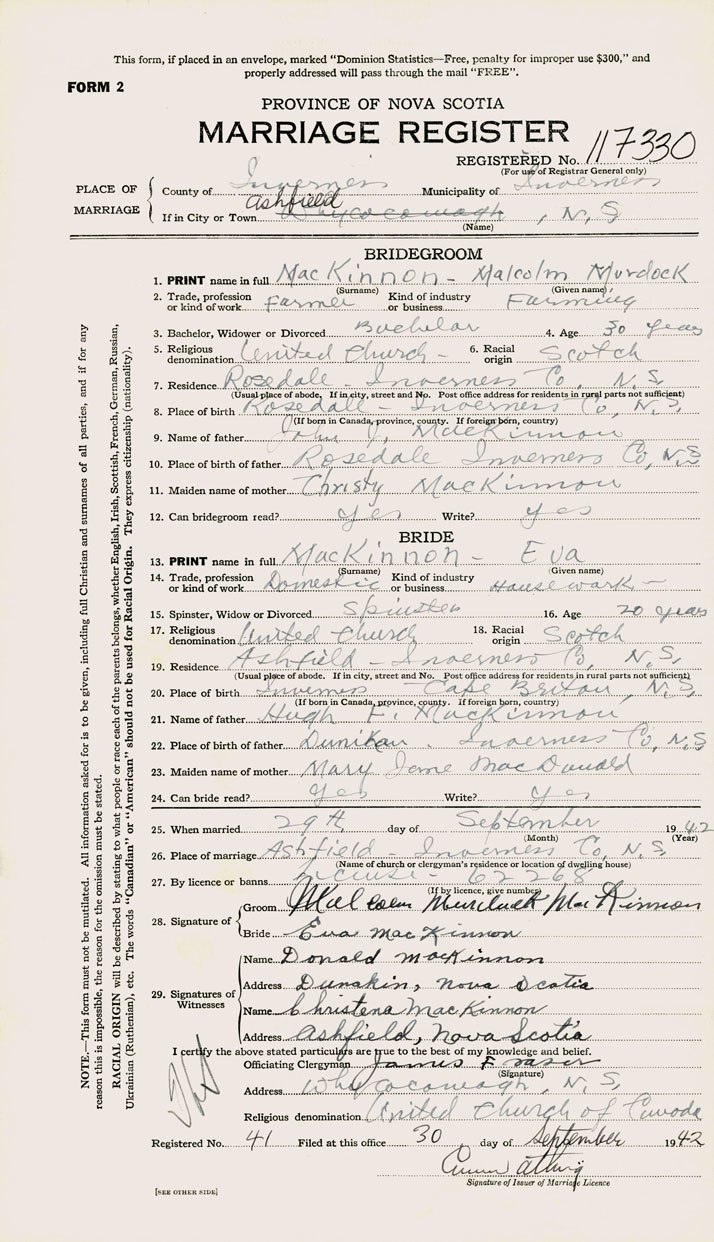 This form, if placed in an envelope, marked "Dominion Statistics—Free, penalty for improper use $300," and
properly addressed will pass through the mail "FREE".
FORM 2
PROVINCE OF NOVA SCOTIA
MARRIAGE REGISTER
REGISTERED No. 117330
(For use of Registrar General only)
PLACE OF MARRIAGE
County of Inverness Municipality of Inverness
Ashfield
If in City or Town Whycocomagh, N, S
(Name)
BRIDEGROOM
1. PRINT name in full MacKinnon - Malcolm Murdock
(Surname) (Given name)
2. Trade, profession or kind of work Farmer Kind of industry or business Farming
3. Bachelor, Widower or Divorced Bachelor 4. Age 30 years
5. Religious denomination United Church - 6. Racial origin Scotch
7. Residence Rosedale - Inverness Co, N. S,
(Usual place of abode. If in city, street and No. Post office address for residents in rural parts not sufficient)
8. Place of birth Rosedale - Inverness Co, N. S,
(If born in Canada, province, county. If foreign born, country)
9. Name of father John J. MacKinnon
10. Place of birth of father Rosedale Inverness Co, N. S
11. Maiden name of mother Christy MacKinnon
12. Can bridegroom read? yes Write? yes
BRIDE
13. PRINT name in full MacKinnon - Eva
(Surname) (Given name)
14. Trade, profession or kind of work Domestic Kind of industry or business Housework -
15. Spinster, Widow or Divorced Spinster 16. Age 20 years
17. Religious denomination United Church 18. Racial origin Scotch
19. Residence Ashfield - Inverness Co, N. S,
(Usual place of abode. If in city, street and No. Post office address for residents in rural parts not sufficient)
20. Place of birth Inverness - Cape Briton, N. S
(If born in Canada, province, county. If foreign born, country)
21. Name of father Hugh F. MacKinnon
22. Place of birth of father Dunikan. Inverness Co, N. S
23. Maiden name of mother Mary Jane MacDonald
24. Can bride read? Yes Write? Yes
25. When married 29th day of September 1942
(Month) (Year)
26. Place of marriage Ashfield - Inverness Co, N. S,
(Name of church or clergyman's residence or location of dwelling house)
27. By licence or banns License - 62268
(If by licence, give number)
28. Signature of
Groom Malcolm Murdock MacKinnon
Bride Eva MacKinnon
29. Signatures of Witnesses
Name Donald MacKinnon
Address Dunakin, Nova Scotia
Name Christena MacKinnon
Address Ashfield, Nova Scotia
I certify the above stated particulars are true to the best of my knowledge and belief.
Officiating Clergyman James F Fraser
(Signature)
Address Whycocomagh, N, S,
Religious denomination United Church of Canada
Registered No. 41 Filed at this office 30 day of September 1942
Signature of Issuer of Marriage Licence
[SEE OTHER SIDE]
NOTE.—This form must not be mutilated. All information asked for is to be given, including full Christian and surnames of all parties, and if for any
reason this is impossible, the reason for the omission must be stated.
RACIAL ORIGIN will be described by stating to what people or race each of the parents belongs, whether English, Irish, Scottish, French, German, Russian,
Ukrainian (Ruthenian), etc. The words "Canadian" or "American" should not be used for Racial Origin. They express citizenship (nationality).